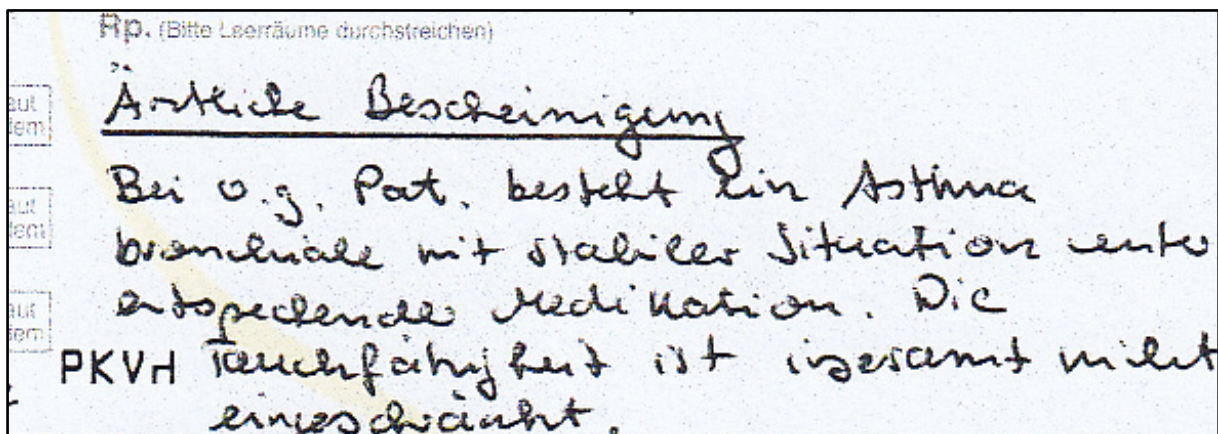 Rp. (Bitte Leerräume durchstreichen)
Ärztliche Bescheinigung
aut
dem
Bei o.g. Pat. besteht ein Asthma
aut
dem
bronchiale mit stabiler Situation unter
entsprechender Medikation. Die
aut
dem
PKVH Tauchfähigkeit ist insgesamt nicht
eingeschränkt.